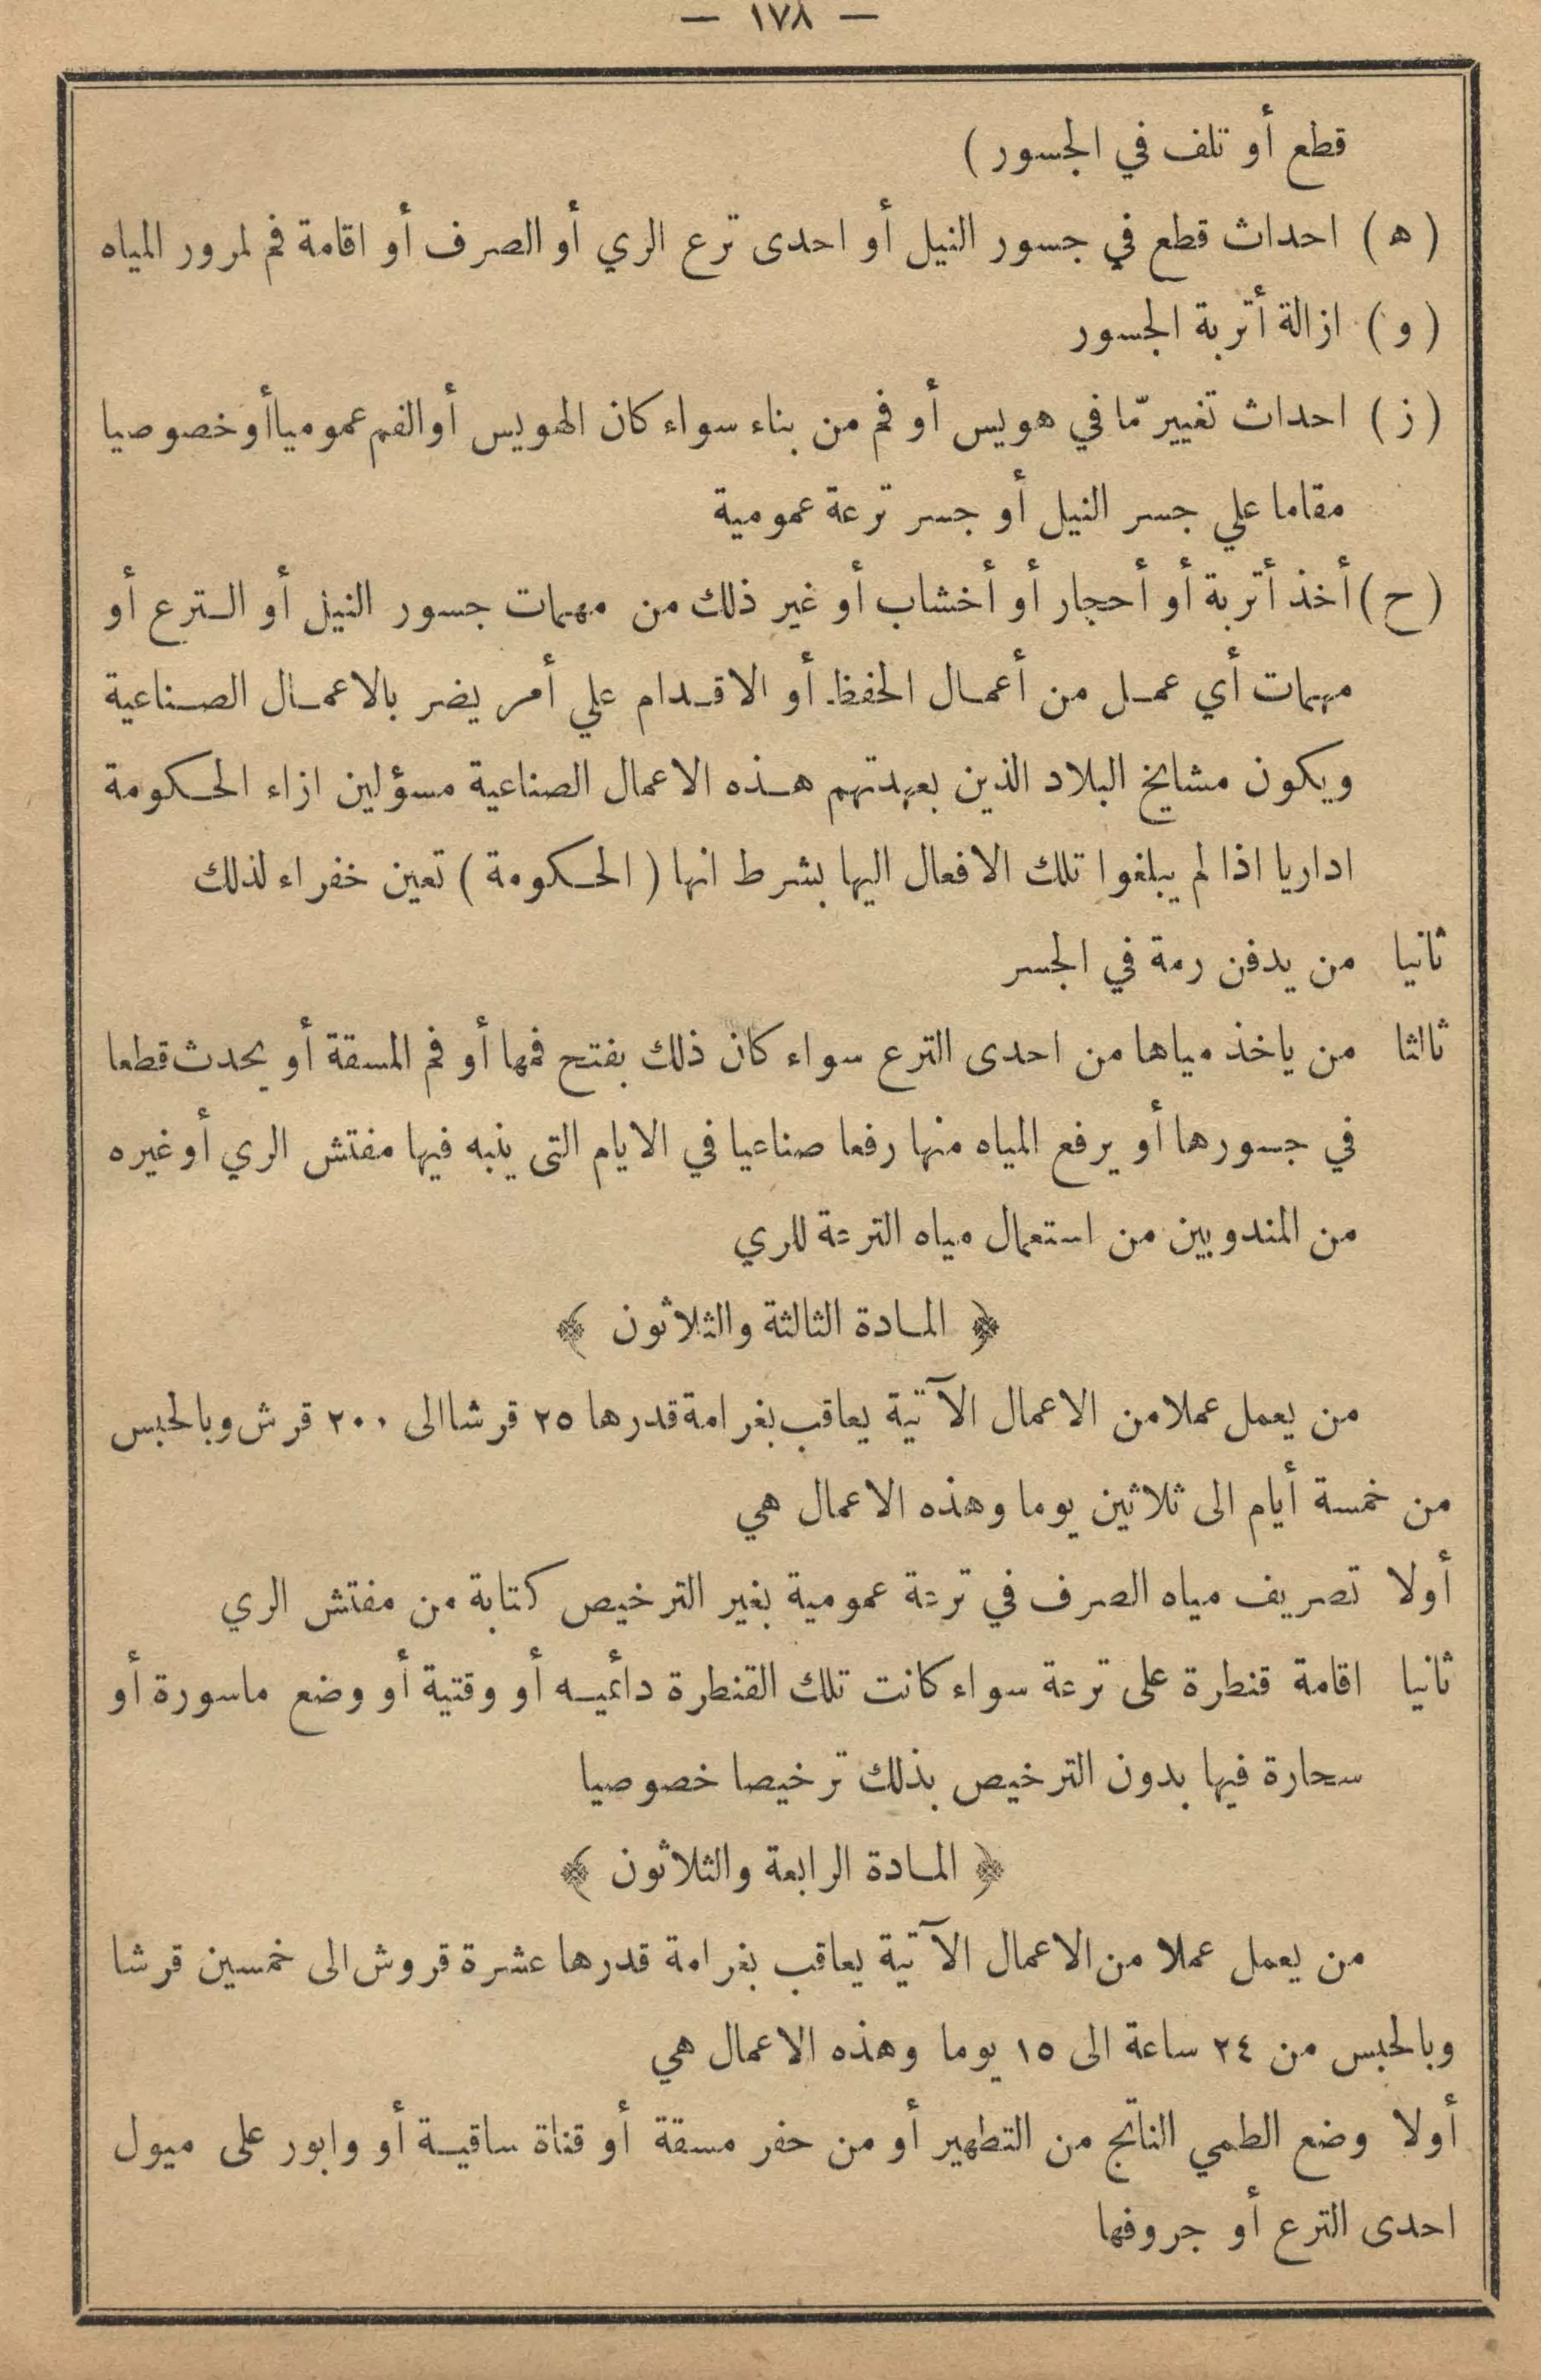 — ١٧٨ —
قطع أو تلف في الجسور )
( ه ) احداث قطع في جسور النيل أو احدى ترع الري أو الصرف أو اقامة فم لمرور المياه
( و ) ازالة أتربة الجسور
( ز ) احداث تغيير مّا في هويس أو فم من بناء سواء كان الهويس أو الفم عموميا أو خصوصيا
مقاما علي جسر النيل أو جسر ترعة عمومية
( ح ) أخذ أتربة أو أحجار أو أخشاب أو غير ذلك من مهمات جسور النيل أو الترع أو
مهمات أي عمل من أعمال الحفظ أو الاقدام علي أمر يضر بالاعمال الصناعية
ويكون مشايخ البلاد الذين بعهدتهم هذه الاعمال الصناعية مسؤلين ازاء الحكومة
اداريا اذا لم يبلغوا تلك الافعال اليها بشرط انها ( الحكومة ) تعين خفراء لذلك
ثانيا من يدفن رمة في الجسر
ثالثا من ياخذ مياها من احدى الترع سواء كان ذلك بفتح فمها أو فم المسقة أو يحدث قطعا
في جسورها أو يرفع المياه منها رفعا صناعيا في الايام التى ينبه فيها مفتش الري أو غيره
من المندوبين من استعمال مياه الترعة للري
﴿ المادة الثالثة والثلاثون ﴾
من يعمل عملا من الاعمال الآتية يعاقب بغرامة قدرها ٢٥ قرشا الى ٢٠٠ قرش وبالحبس
من خمسة أيام الى ثلاثين يوما وهذه الاعمال هي
أولا تصريف مياه الصرف في ترعة عمومية بغير الترخيص كتابة من مفتش الري
ثانيا اقامة قنطرة على ترعة سواء كانت تلك القنطرة دائميه أو وقتية أو وضع ماسورة أو
سحارة فيها بدون الترخيص بذلك ترخيصا خصوصيا
﴿ المادة الرابعة والثلاثون ﴾
من يعمل عملا من الاعمال الآتية يعاقب بغرامة قدرها عشرة قروش الى خمسين قرشا
وبالحبس من ٢٤ ساعة الى ١٥ يوما وهذه الاعمال هي
أولا وضع الطمي الناتج من التطهير أو من حفر مسقة أو قناة ساقية أو وابور على ميول
احدى الترع أو جروفها